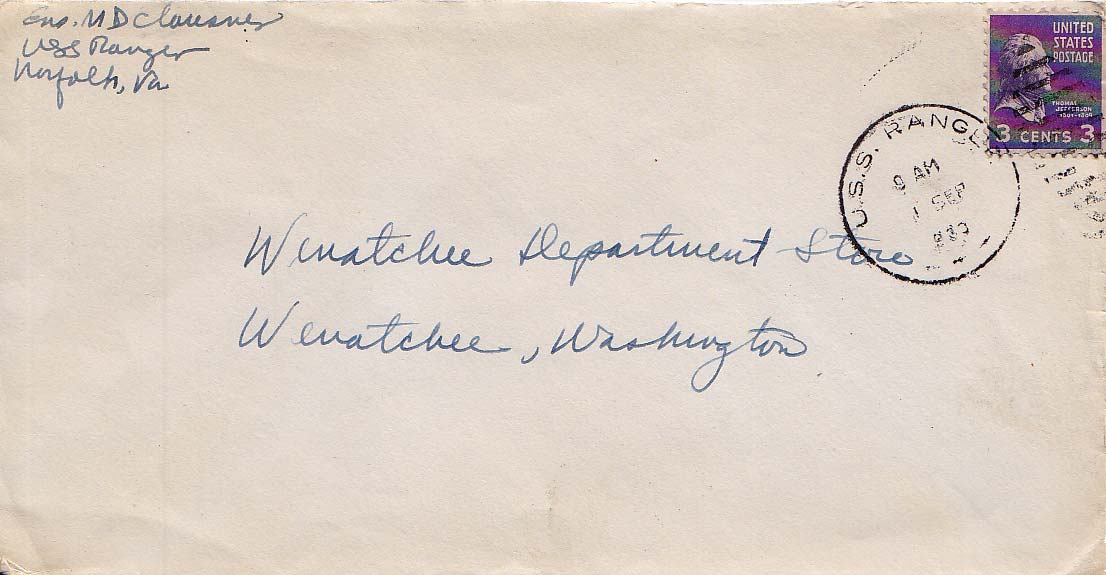 Ens. M D Clausner
USS Ranger
Norfolk, Va
UNITED
STATES
POSTAGE
THOMAS
JEFFERSON
1801-1809
3 CENTS 3
U.S.S. RANGER
9 AM
1 SEP
Wenatchee Department Store
Wenatchee, Washington